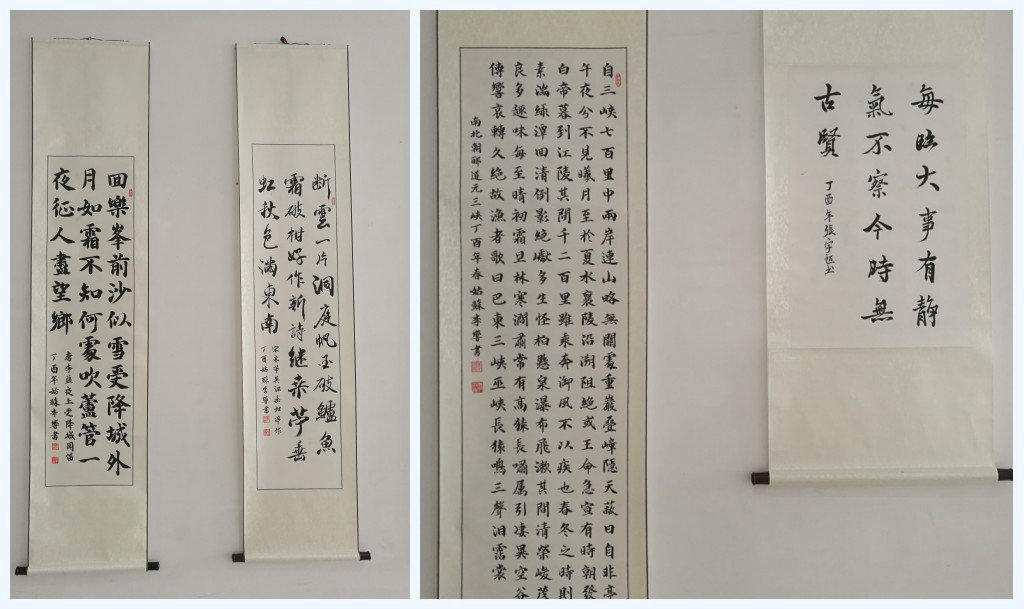 回樂峯前沙似雪受降城外
月如霜不知何處吹蘆管一
夜征人盡望鄉
唐李益夜上受降城聞笛
丁酉年姑蘇李響書
断雲一片洞庭帆玉破鱸魚
霜破柑好作新詩継桑苧垂
虹秋色满東南
宋米芾吳江垂虹亭作
丁酉姑蘇李響書
自三峽七百里中兩岸連山略無闕處重巖叠嶂隱天蔽日自非亭
午夜兮不見曦月至於夏水襄陵沿溯阻絶或王命急宣有時朝發
白帝暮到江陵其間千二百里雖乘奔御風不以疾也春冬之時則
素湍緑潭回清倒影絶巘多生怪柏懸泉瀑布飛漱其間清榮峻茂
良多趣味每至晴初霜旦林寒澗肅常有高猿長嘯屬引凄異空谷
傳響哀轉久絶故漁者歌曰巴東三峽巫峽長猿鳴三聲泪霑裳
南北朝酈道元三峽丁酉年春姑蘇李響書
每临大事有静
氣不察今時無
古賢
丁酉年張宇恒書